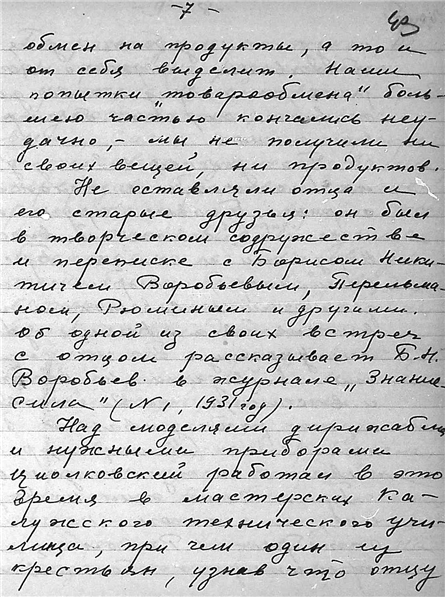 -7-
43
обмен на продукты, а то и
от себя выделит. Наши
попытки „товарообмена" боль-
шею частью кончались неу-
дачно, - мы не получили ни
своих вещей, ни продуктов.
Не оставляли отца и
его старые друзья: он был
в творческом содружестве
и переписке с Борисом Ники-
тичем Воробьевым, Перельма-
ном, Рюминым и другими.
Об одной из своих встреч
с отцом рассказывает Б.Н.
Воробьев в журнале „Знание-
сила" (N 1, 1931 год).
Над моделями дирижабля
и нужными приборами
Циолковский работал в это
время в мастерских Ка-
лужского технического учи-
лища, при чем один из
крестьян, узнав что отцу